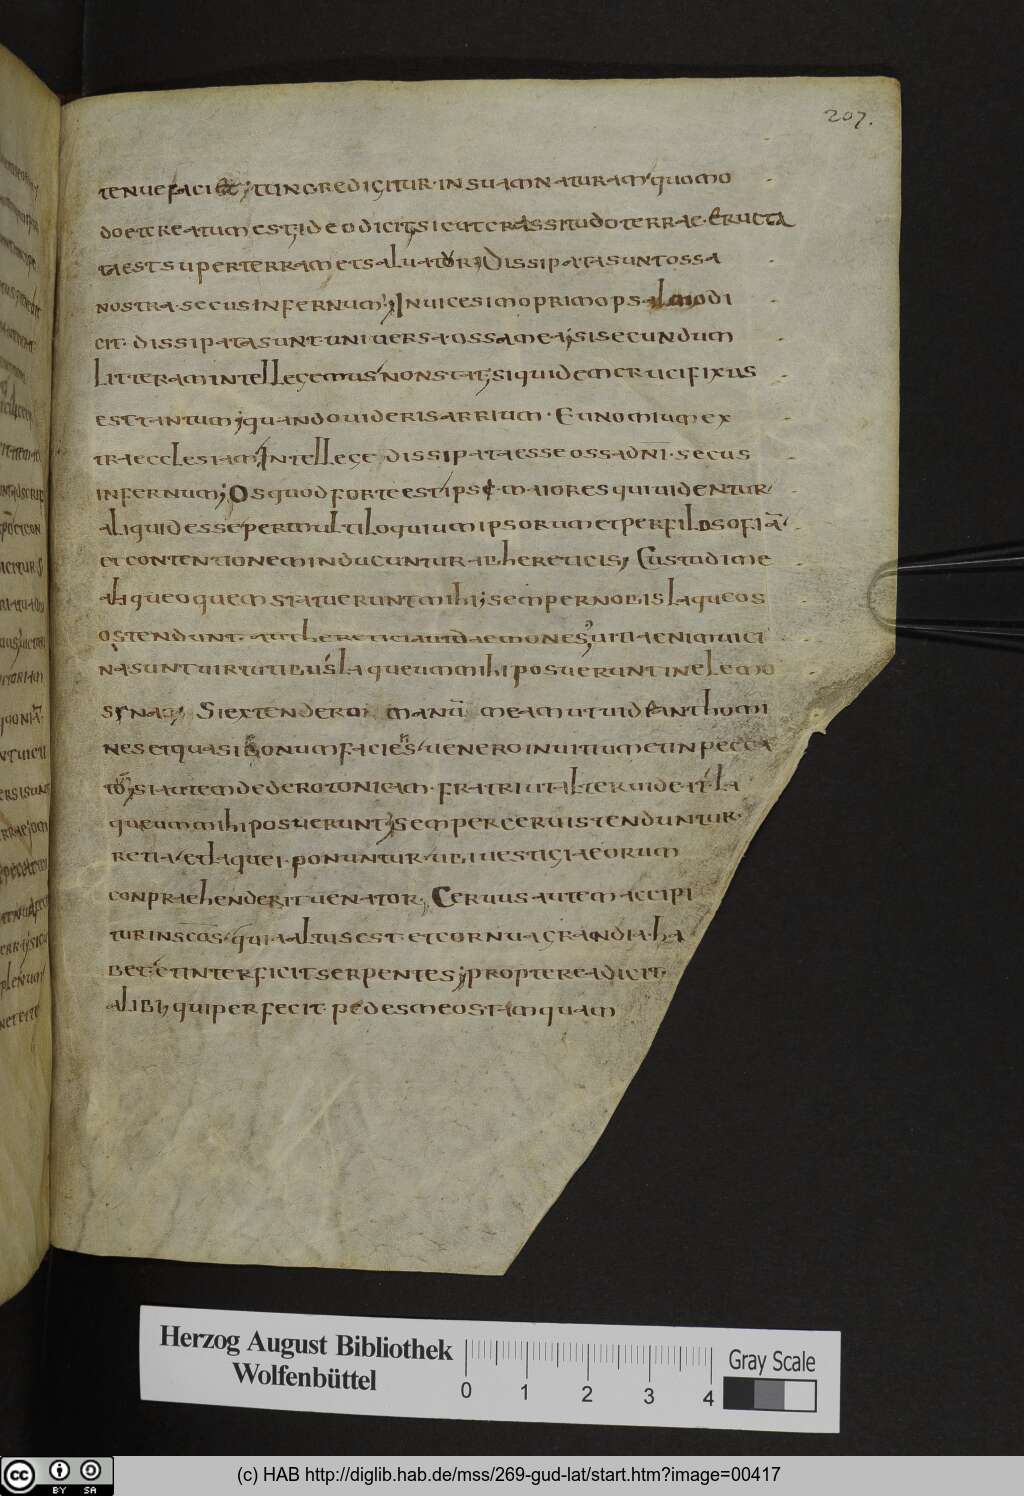 207.
tenue faciet; ut ingredicitur· in suam naturam· quomo
do et creatum est; ideo dicit; sicut crassitudo terrae· eructa
ta est super terram et saluator; Dissipata sunt ossa
nostra· secus infernum; In uicesimo primo psalmo di
cit· dissipata sunt· uniuersa ossa mea; si secundum
litteram intellegemus' non stat; siquidem crucifixus
est tantum; quando uideris arrium· Eunomium ex
tra ecclesiam; Intellege· dissipata esse ossa dn̄i· secus
infernum; Os quod forte est ipse· maiores qui uidentur'
aliquid esse' per multiloquium ipsorum et per filosofiā'
et contentionem inducuntur ab hereticis; Custodi me
a laqueo quem statuerunt mihi; semper nobis laqueos
ostendunt· aut heretici aut daemones; uitia enim uici
na sunt uirtutibus' laqueum mihi posuerunt in elemo
synas; Si extendero manū meam ut uideant homi
nes et quasi bonum faciens' uenero in uitium et in pecca
tō; si autem dedero tonicam· fratri ut alter uideat' la
queum mihi posuerunt; semper ceruis tenduntur·
retia' et laquei· ponuntur· ubi uestigia eorum
conpraehenderit uenator; Ceruus autem accipi
tur in scās' quia altus est· et cornua grandia· ha
bet' et interficit serpentes; propterea dicit·
alibi; qui perfecit· pedes meos tamquam
Herzog August Bibliothek
Wolfenbüttel
0 1 2 3 4
Gray Scale
cc BY SA
(c) HAB http://diglib.hab.de/mss/269-gud-lat/start.htm?image=00417